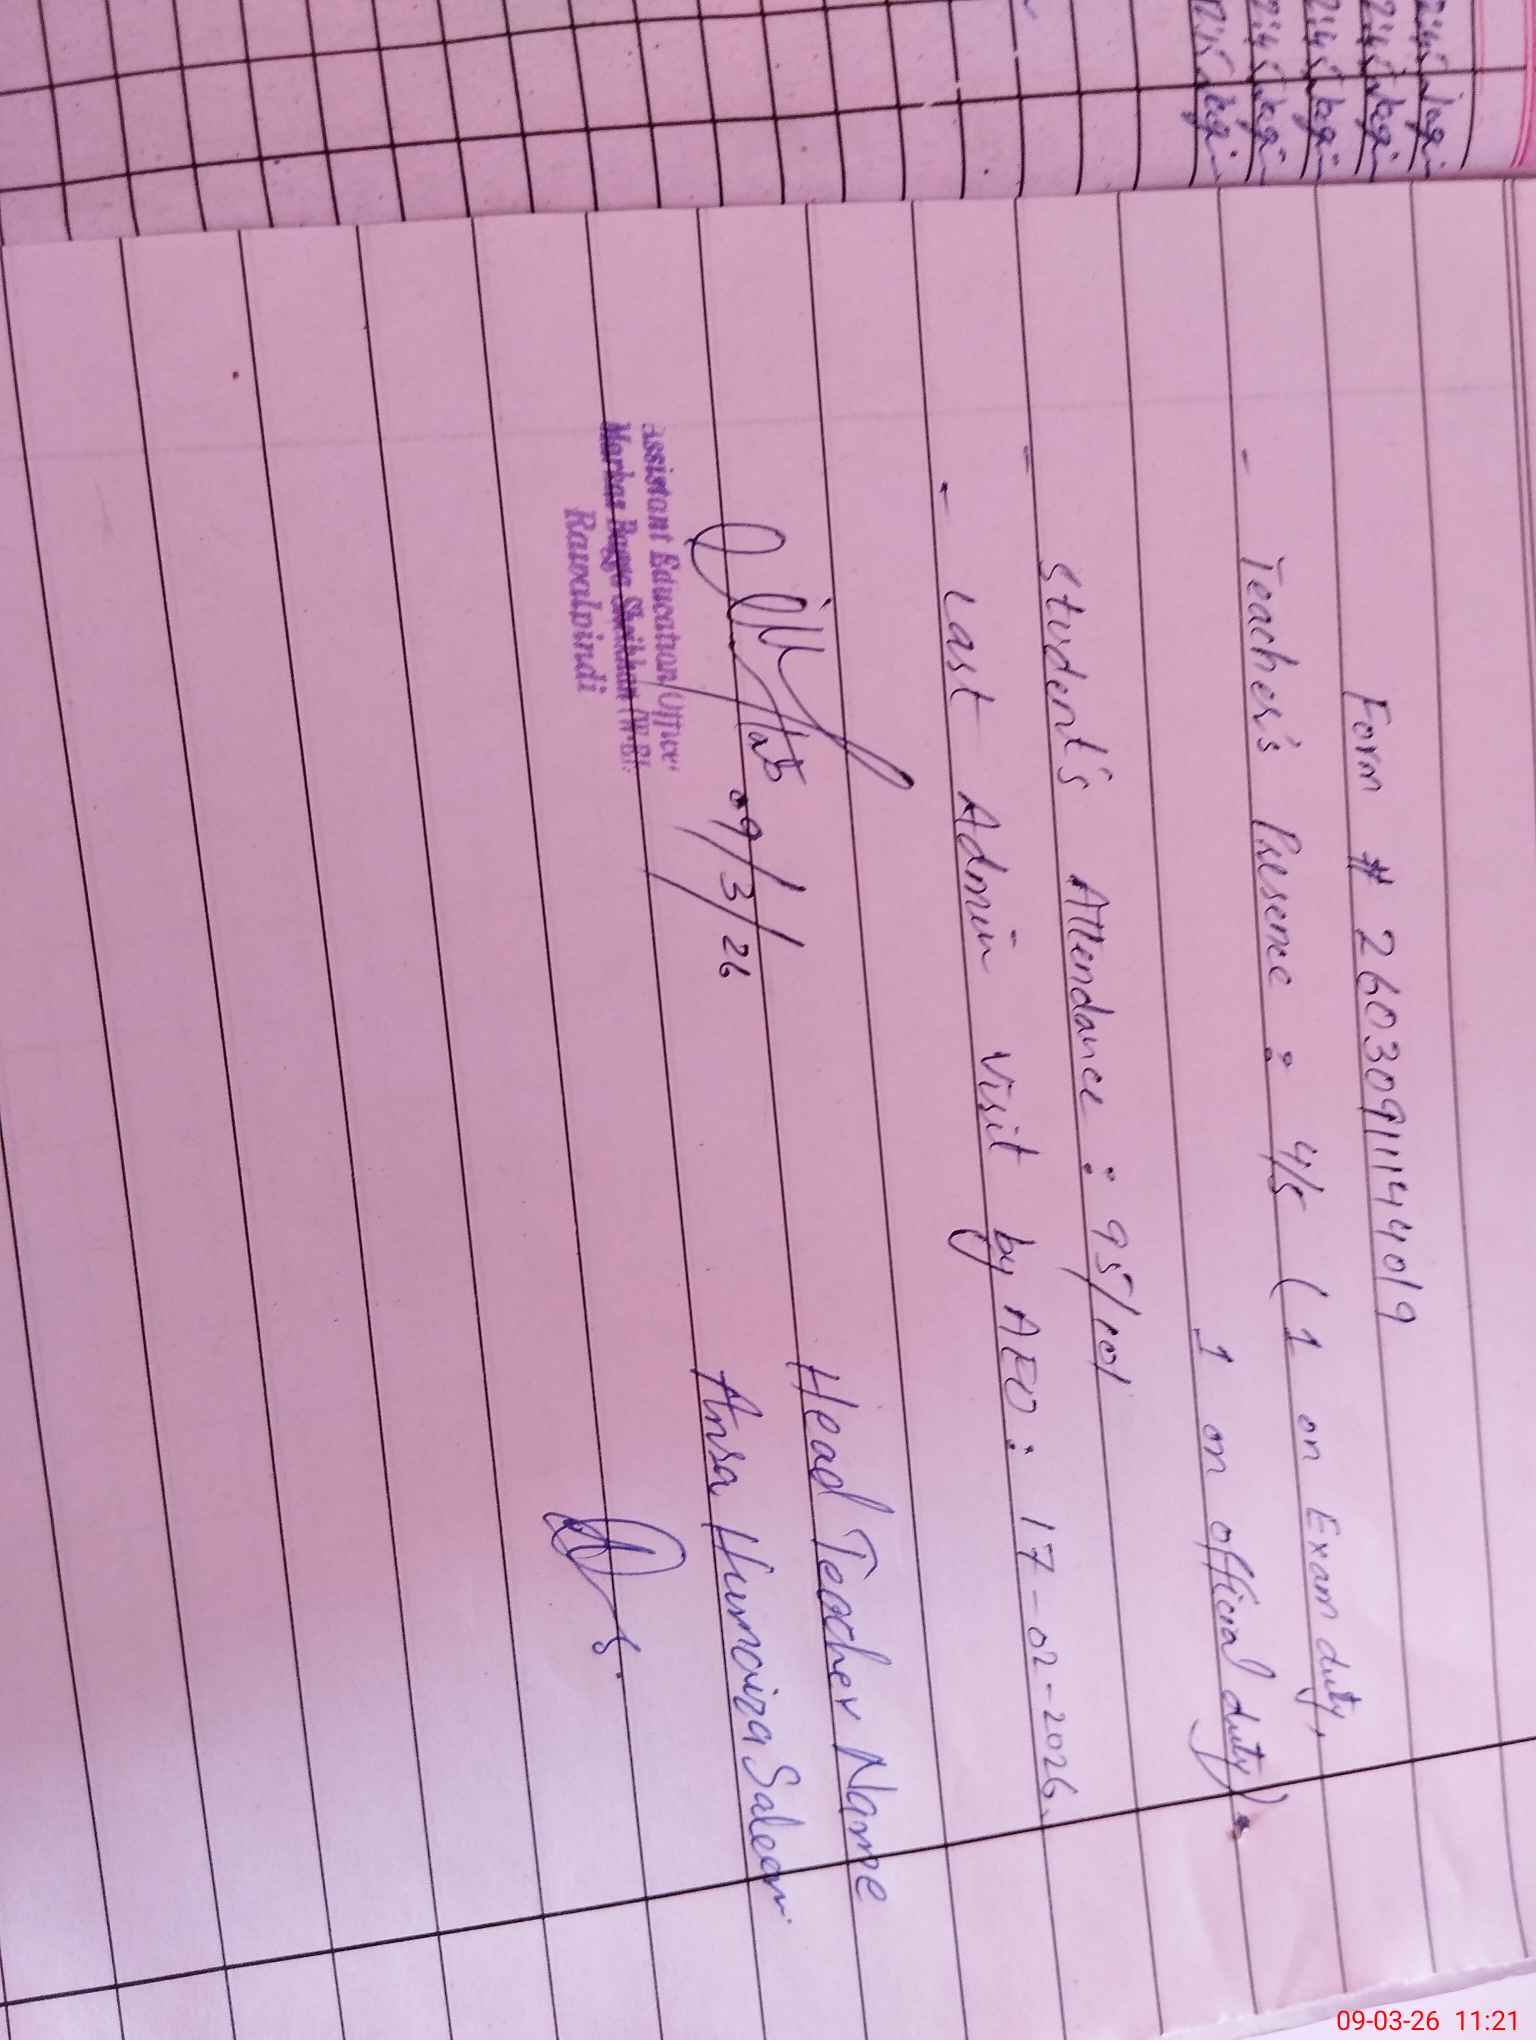 Form # 2603091114 4019
- Teacher's Presence : 4/5 ( 1 on Exam duty,
1 on official duty).
- Student's Attendance : 95/101
- Last Admin visit by AEO : 17-02-2026.
Head Teacher Name
Ansa Humaira Saleem
09/3/26
Assistant Education Officer
Markaz Bagga Sheikhan (W-
Rawalpindi
09-03-26 11:21